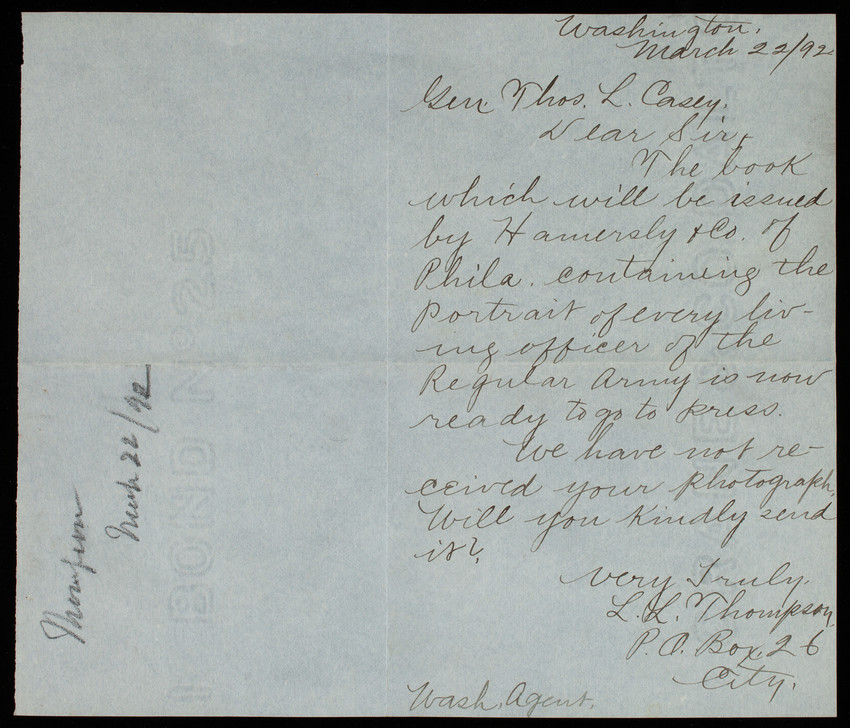 Washington,
March 22/92
Gen. Thos. L. Casey.
Dear Sir,
The book
which will be issued
by Hamersly & Co. of
Phila. containing the
Portrait of every liv-
ing officer of the
Regular Army is now
ready to go to press.
We have not re-
ceived your photograph.
Will you kindly send
it?
Very Truly.
L. L. Thompson,
P.O. Box. 26
City.
Wash. Agent.
Thompson
March 22/92
BOND No 25